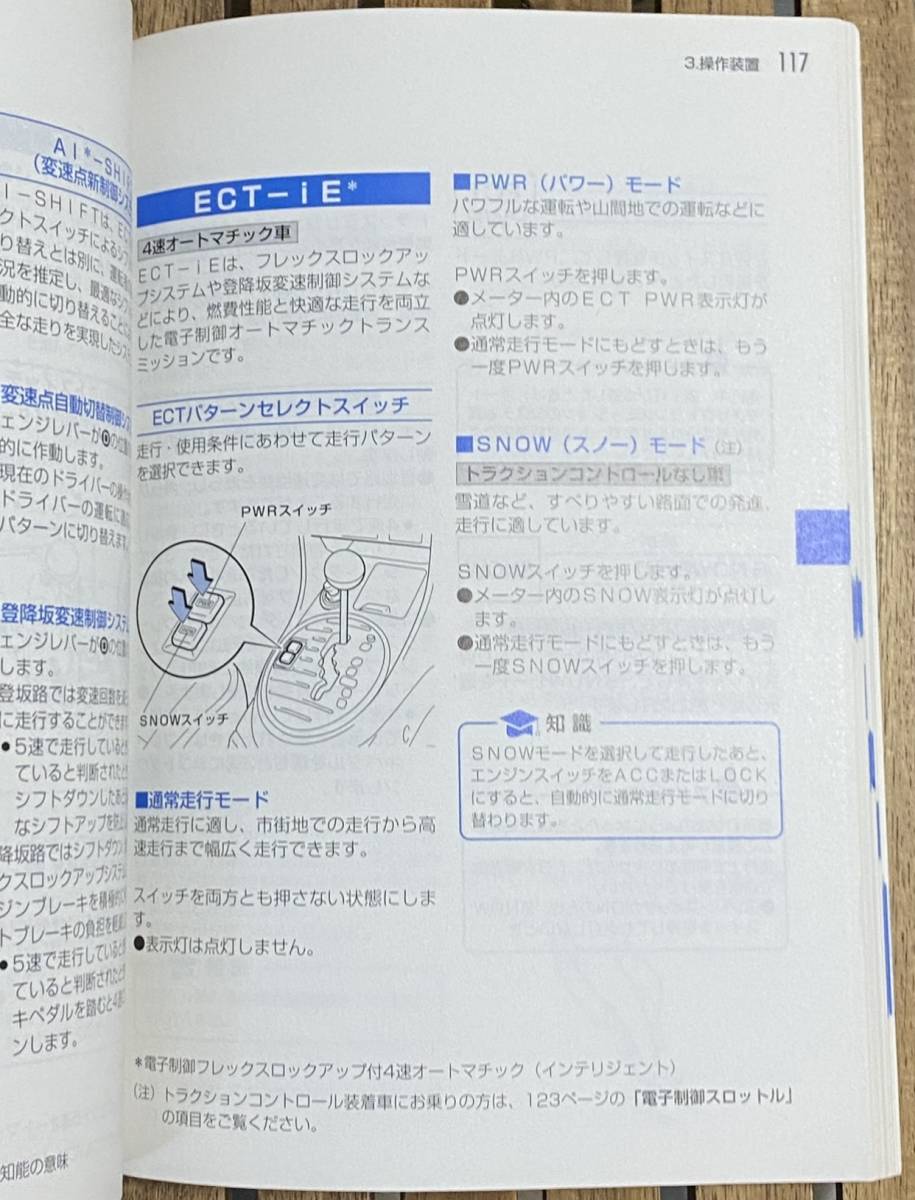 3.操作装置 117
AI*-SHI
(変速点新制御シス
I-SHIFTは、EC
クトスイッチによるシフ
り替えとは別に、運転者
況を推定し、最適なシフ
動的に切り替えることに
全な走りを実現したシステ
変速点自動切替制御シス
エンジレバーがDの位置
的に作動します。
現在のドライバーの操作
ドライバーの運転に適
パターンに切り替えます。
登降坂変速制御システム
エンジレバーがDの位置
します。
登坂路では変速回数を減
に走行することができま
●5速で走行していると
ていると判断されたと
シフトダウンしたあと
なシフトアップを防止
降坂路ではシフトダウン
クスロックアップシステム
ジンブレーキを積極的
トブレーキの負担を軽減
●5速で走行していると
ていると判断されたと
キペダルを踏むと4速
ンします。
知能の意味
ECT-iE*
4速オートマチック車
ECT-iEは、フレックスロックアッ
プシステムや登降坂変速制御システムな
どにより、燃費性能と快適な走行を両立
した電子制御オートマチックトランス
ミッションです。
ECTパターンセレクトスイッチ
走行・使用条件にあわせて走行パターン
を選択できます。
PWRスイッチ
SNOWスイッチ
■通常走行モード
通常走行に適し、市街地での走行から高
速走行まで幅広く走行できます。
スイッチを両方とも押さない状態にしま
す。
●表示灯は点灯しません。
■PWR（パワー）モード
パワフルな運転や山間地での運転などに
適しています。
PWRスイッチを押します。
●メーター内のECT PWR表示灯が
点灯します。
●通常走行モードにもどすときは、もう
一度PWRスイッチを押します。
■SNOW（スノー）モード（注）
トラクションコントロールなし車
雪道など、すべりやすい路面での発進、
走行に適しています。
SNOWスイッチを押します。
●メーター内のSNOW表示灯が点灯し
ます。
●通常走行モードにもどすときは、もう
一度SNOWスイッチを押します。
知識
SNOWモードを選択して走行したあと、
エンジンスイッチをACCまたはLOCK
にすると、自動的に通常走行モードに切り
替わります。
*電子制御フレックスロックアップ付4速オートマチック（インテリジェント）
（注）トラクションコントロール装着車にお乗りの方は、123ページの「電子制御スロットル」
の項目をご覧ください。